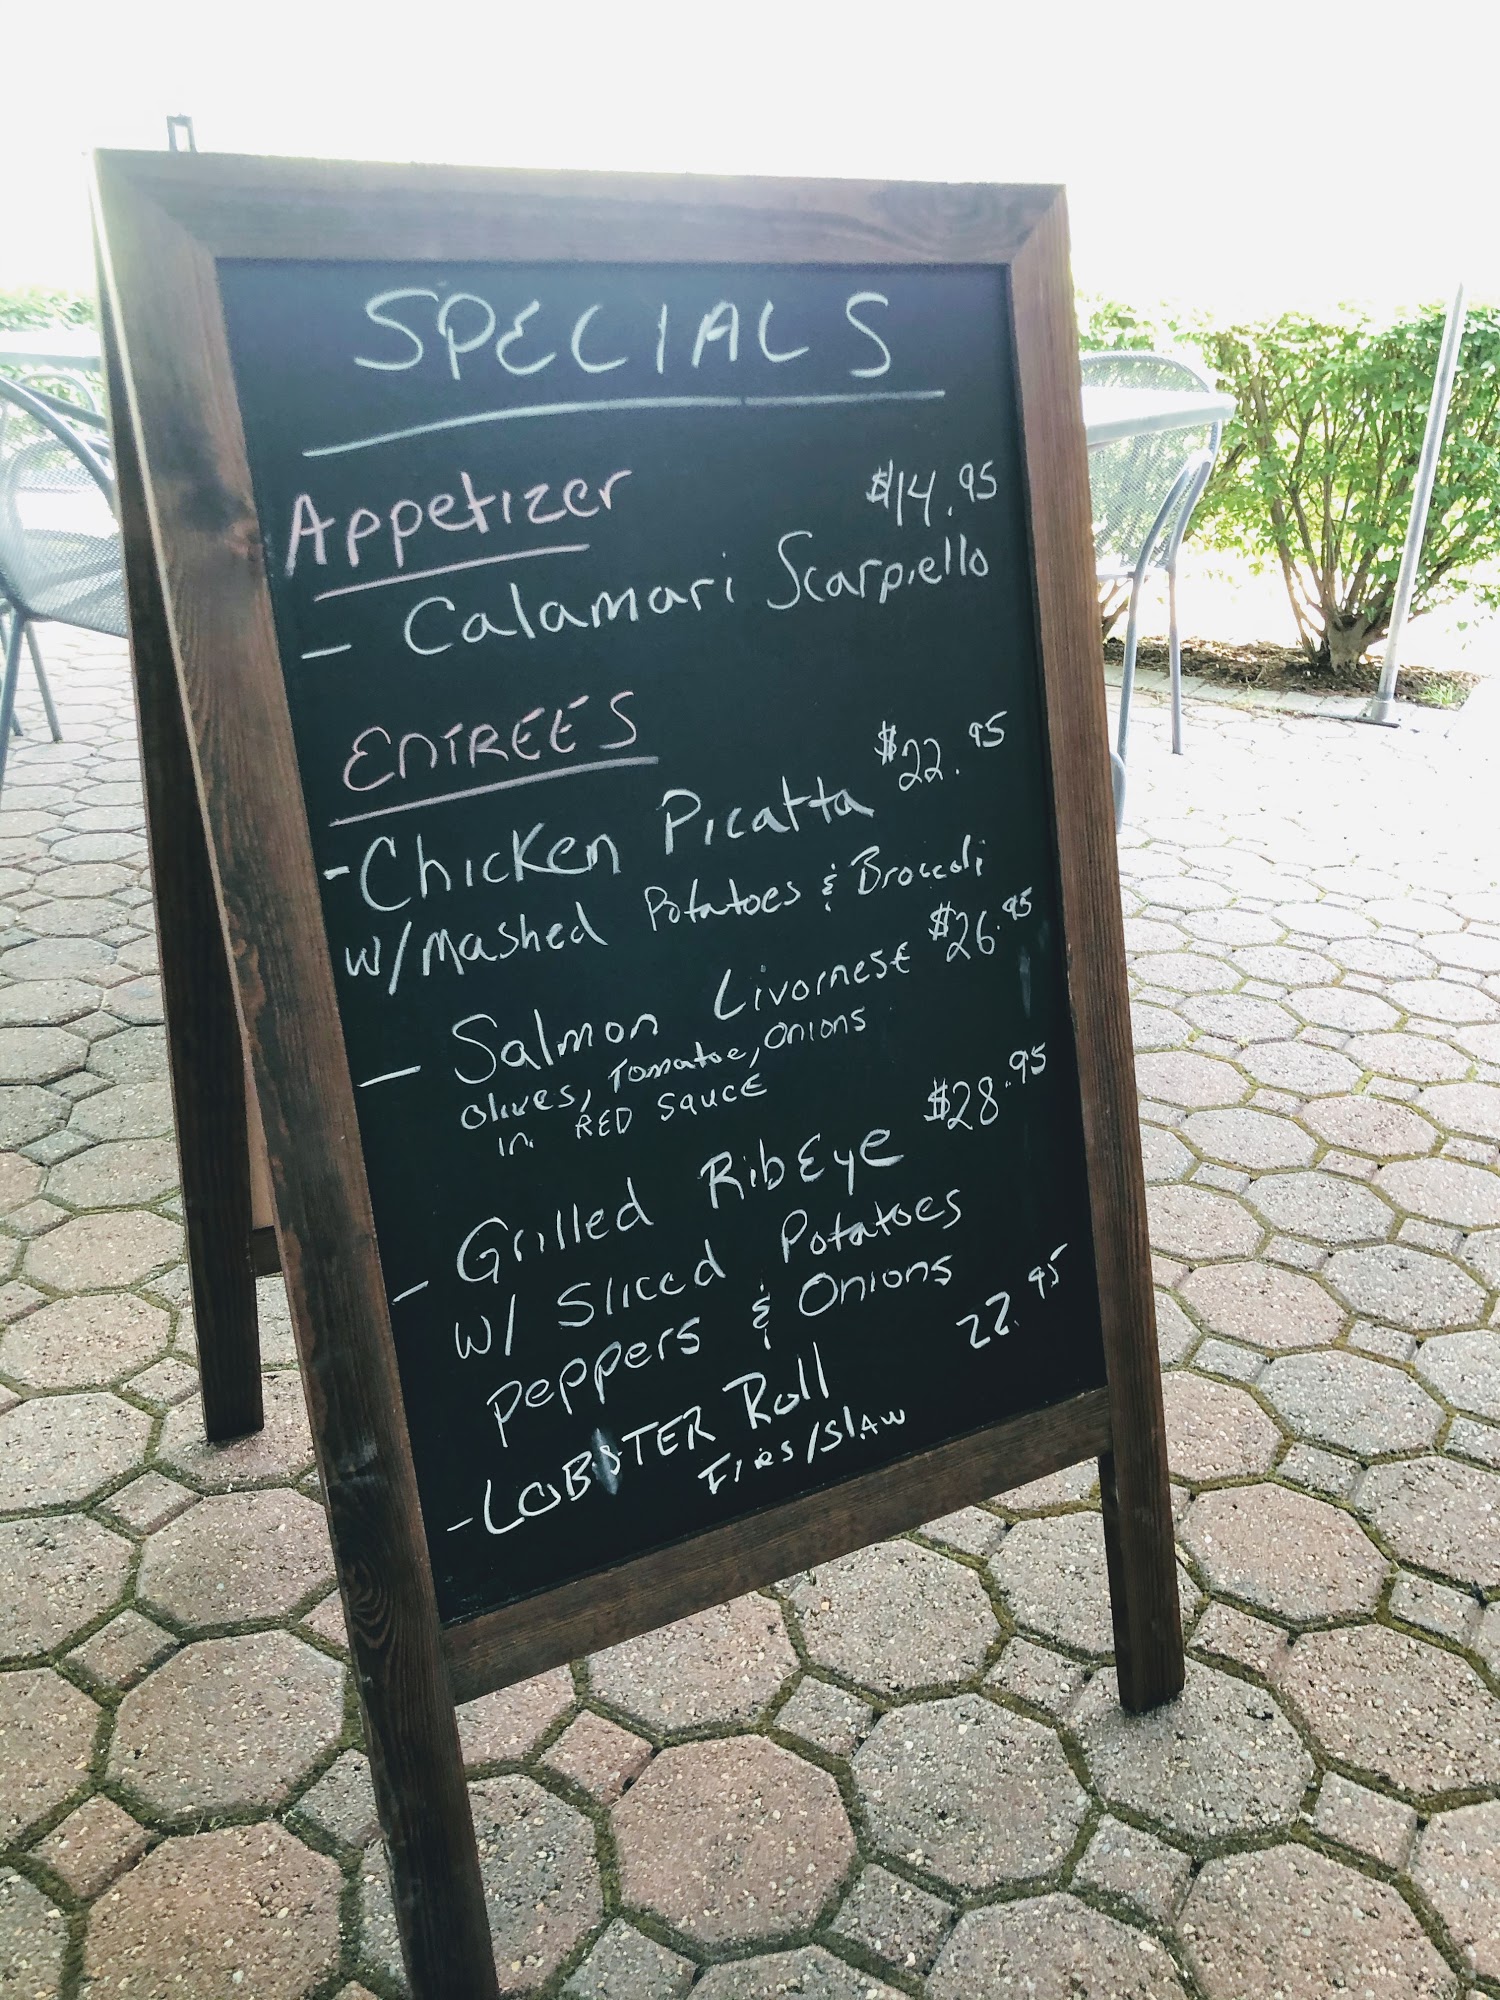 SPECIALS
Appetizer
$14.95
- Calamari Scarpiello
ENTREES
- Chicken Picatta $22.95
w/ Mashed Potatoes & Broccoli
- Salmon Livornese $26.95
olives, Tomatoe, Onions
in RED SAUCE
- Grilled RibEye $28.95
w/ Sliced Potatoes
peppers & Onions
- LOBSTER Roll 22.95
Fries/Slaw